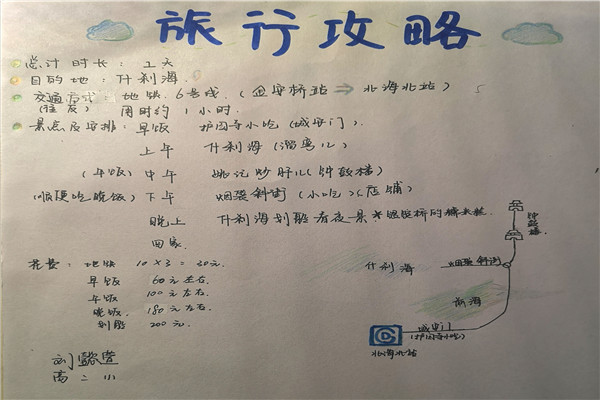 旅行攻略
总计时长：1天
目的地：什刹海
交通方式：地铁 6号线（金安桥站⇒北海北站）
(往返) 用时约1小时.
景点及安排：早饭 护国寺小吃(城安门).
上午 什刹海(溜弯儿)
(午饭)中午 姚记炒肝儿(钟鼓楼)
(顺便吃晚饭)下午 烟袋斜街(小吃)(店铺)
晚上 什刹海划船看夜景
回家
花费：地铁 10×3=30元.
早饭 60元左右.
午饭 100元左右.
晚饭. 180元左右.
划船 200元.
钟鼓楼
什刹海 烟袋斜街
前海
(护国寺小吃)
北海北站
高二